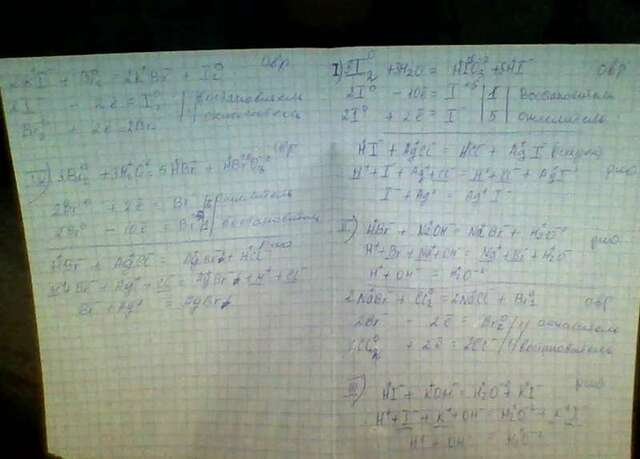 2K⁺I⁻ + Br₂⁰ = 2K⁺Br⁻ + I₂⁰ овр
2I⁻ - 2ē = I₂⁰ | восстановитель
Br₂⁰ + 2ē = 2Br⁻ | окислитель
IV) 3Br₂⁰ + 3H₂O = 5HBr + HBrO₃ овр
2Br⁰ + 2ē = Br окислитель
2Br⁰ - 10ē = Br восстановитель
HBr + AgCl = AgBr↓ + HCl рио
H⁺ + Br⁻ + Ag⁺ + Cl⁻ = AgBr↓ + H⁺ + Cl⁻
Br⁻ + Ag⁺ = AgBr↓
I) 3I₂⁰ + 3H₂O = HIO₃ + 5HI⁻ овр
2I⁰ - 10ē = I⁺⁵ | 1 | Восстановитель
2I⁰ + 2ē = I⁻ | 5 | окислитель
HI + AgCl = HCl + AgI
H⁺ + I⁻ + Ag⁺ + Cl⁻ = H⁺ + Cl⁻ + AgI рио
I⁻ + Ag⁺ = Ag⁺I⁻
II) HBr + NaOH = NaBr + H₂O
H⁺ + Br⁻ + Na⁺ + OH⁻ = Na⁺ + Br⁻ + H₂O рио
H⁺ + OH⁻ = H₂O
2NaBr + Cl₂⁰ = 2NaCl + Br₂⁰ овр
2Br⁻ - 2ē = Br₂⁰ /1/ окислитель
Cl₂⁰ + 2ē = 2Cl⁻ /1/ восстановитель
III) HI + KOH = H₂O + KI рио
H⁺ + I⁻ + K⁺ + OH⁻ = H₂O + K⁺I⁻
H⁺ + OH⁻ = H₂O